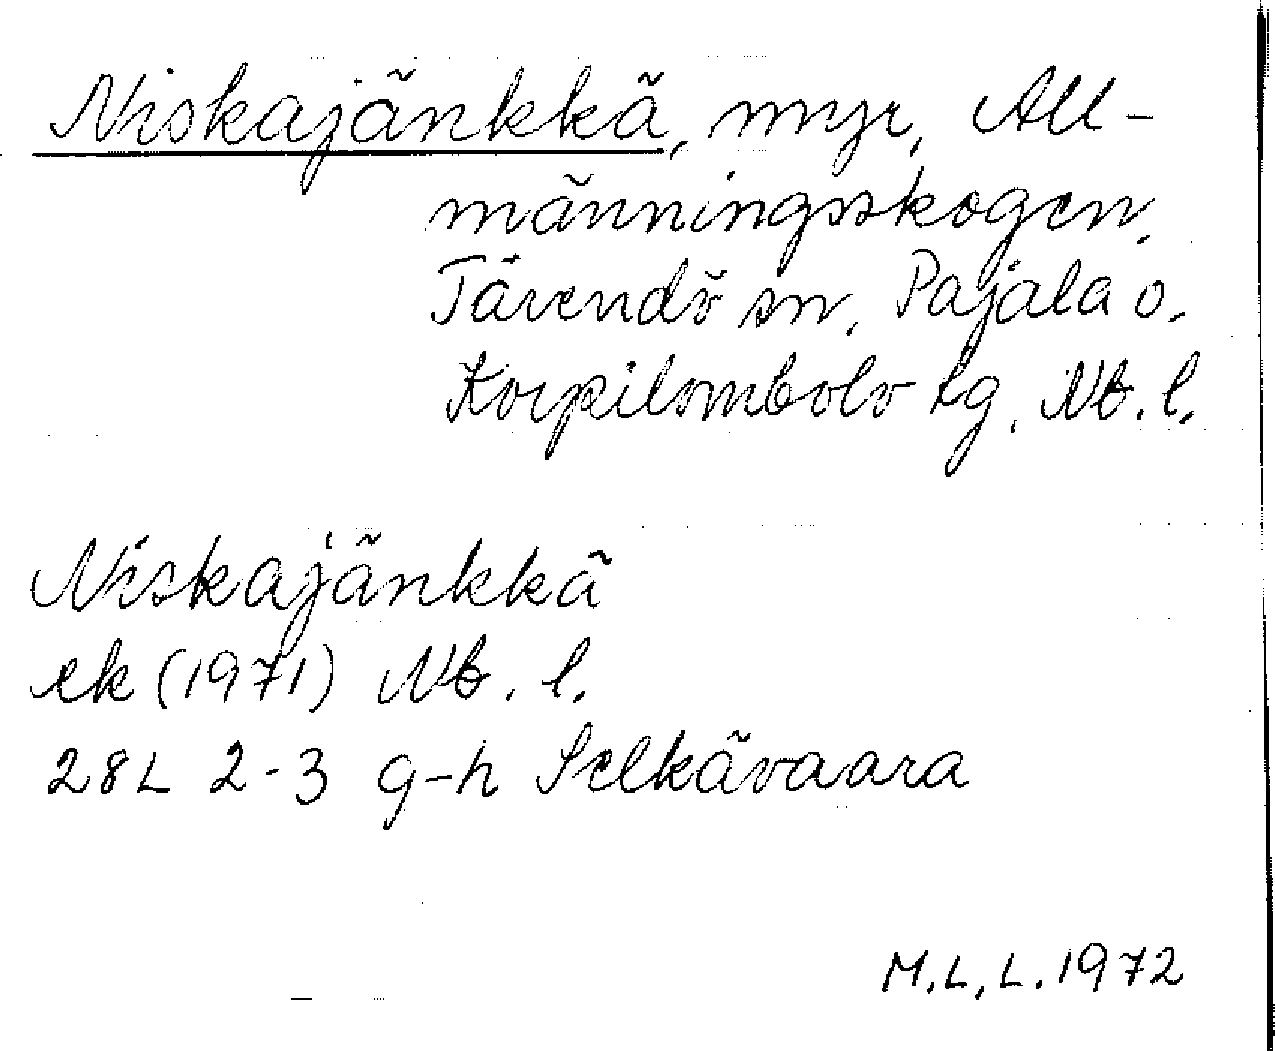 Niskajänkkä, myr, All-
männingsskogen,
Tärendö sn, Pajala o.
Korpilombolo tg, Nb. l.
Niskajänkkä
ek (1971) Nb. l.
28L 2-3 g-h Selkävaara
M.L,L. 1972